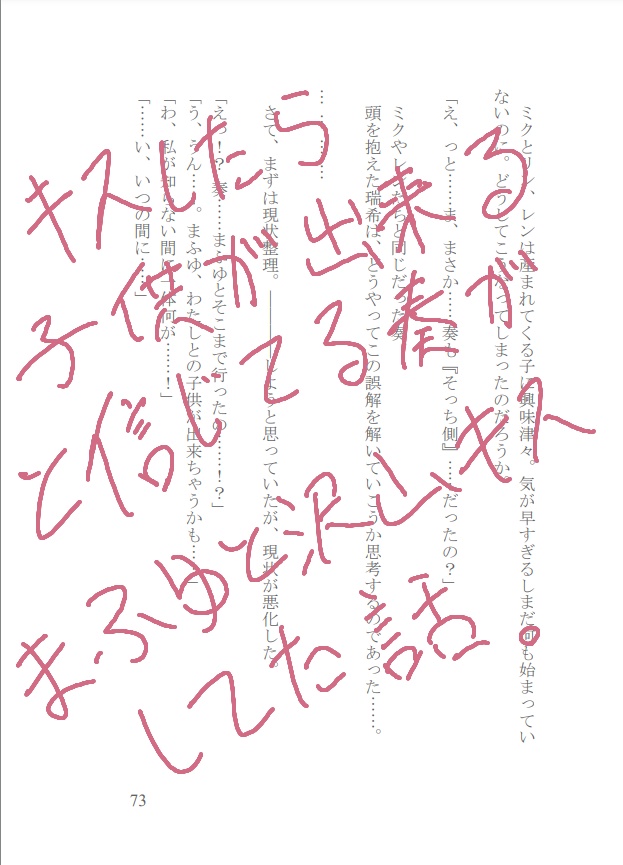 ミクとリン、レンは産まれてくる子に興味津々。気が早すぎるしまだ何も始まってい
ないのに。どうしてこうなってしまったのだろうか。
「え、っと……ま、まさか……奏も『そっち側』……だったの？」
ミクやレンたちと同じだった奏
頭を抱えた瑞希は、どうやってこの誤解を解いていこうか思考するのであった……。
…………
さて、まずは現状整理。――――しようと思っていたが、現状が悪化した。
「えっ！？ 奏……まふゆとそこまで行ったの……！？」
「う、うん……。まふゆ、わたしとの子供が出来ちゃうかも……」
「わ、私が知らない間に一体何が……！」
「……い、いつの間に……」
73
キスしたら
子供が出来る
と信じてる奏が
まふゆと沢山キス
してた話。